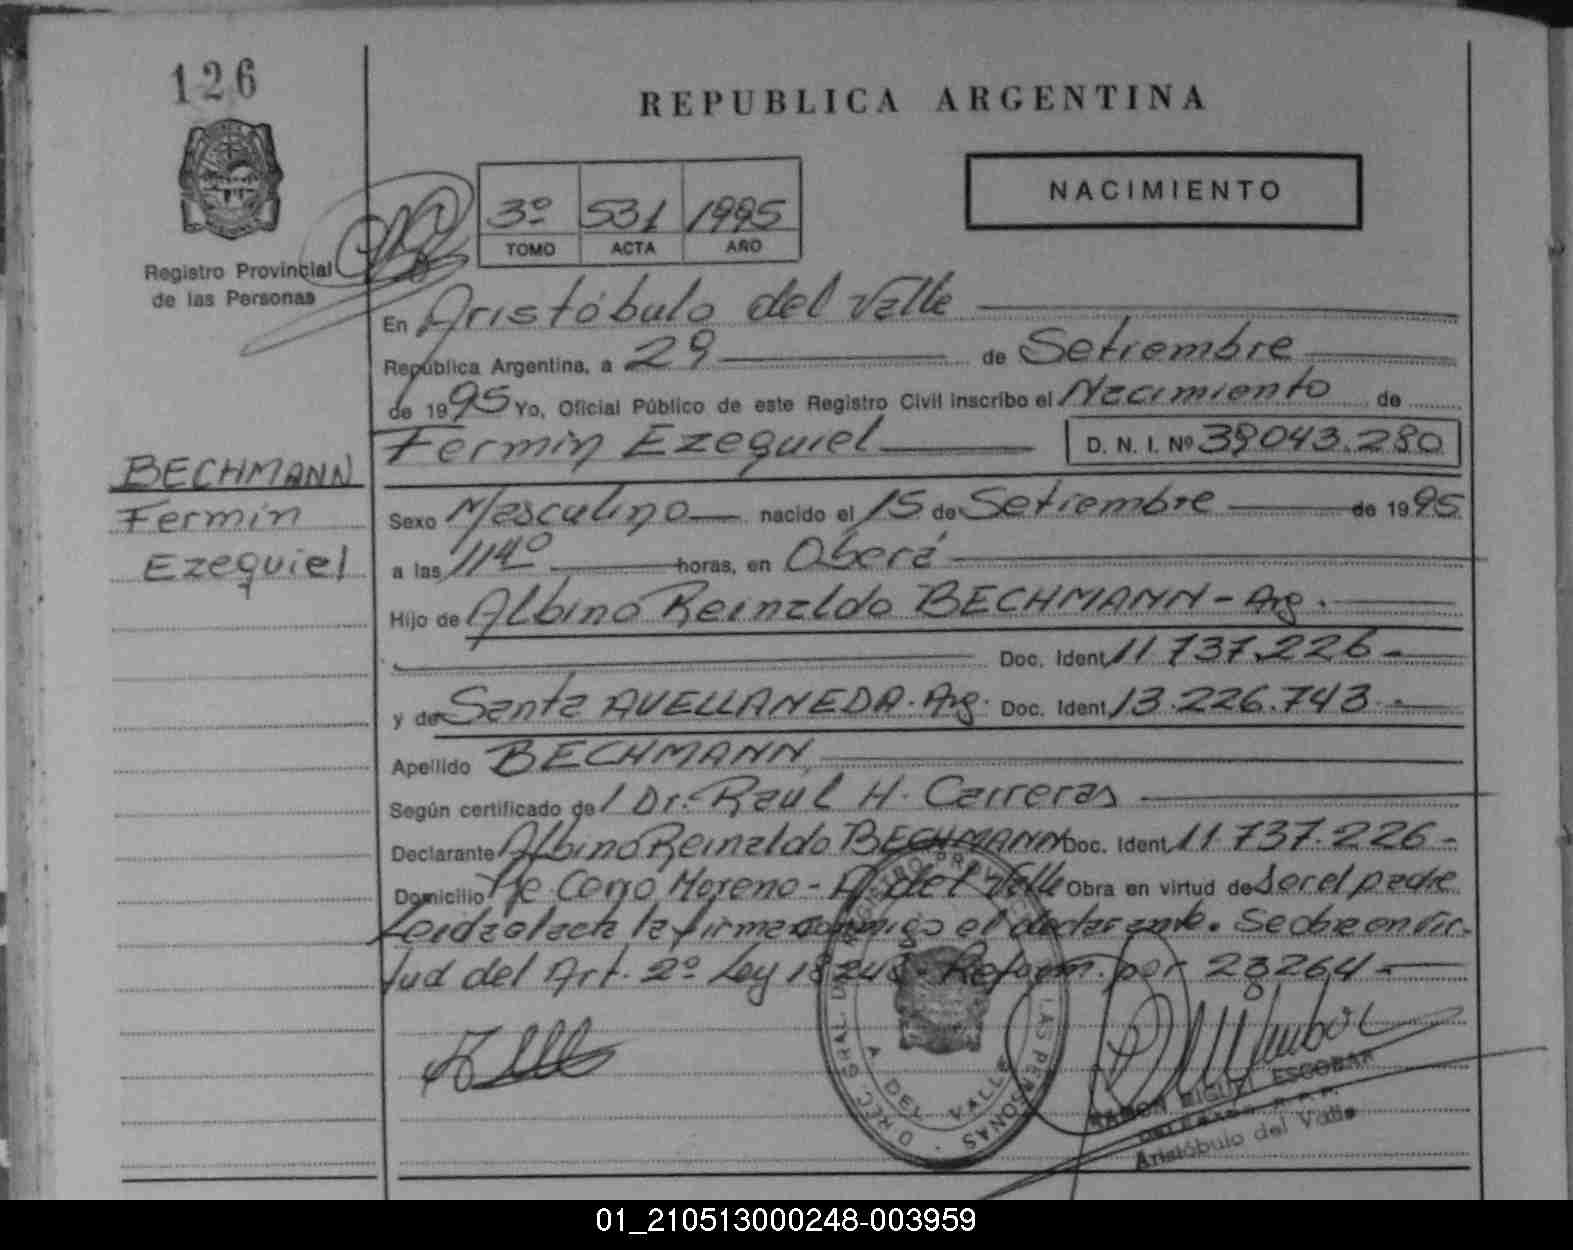 126
REPUBLICA ARGENTINA
NACIMIENTO
3º 531 1995
TOMO ACTA AÑO
Registro Provincial
de las Personas
En Aristóbulo del Valle
República Argentina, a 29 de Setiembre
de 1995 Yo, Oficial Público de este Registro Civil inscribo el Nacimiento de
Fermin Ezequiel D. N. I. Nº 39043.280
BECHMANN
Fermin
Ezequiel
Sexo Masculino nacido el 15 de Setiembre de 1995
a las 11 4º horas, en Oberá
Hijo de Albino Reinaldo BECHMANN - Arg.
Doc. Ident. 11.737.226 -
y de Santa AVELLANEDA. Arg. Doc. Ident. 13.226.743 -
Apellido BECHMANN
Según certificado de l Dr. Raúl H. Carreras
Declarante Albino Reinaldo BECHMANN Doc. Ident. 11.737.226 -
Domicilio Pje. Cerro Moreno - A. del Valle Obra en virtud de ser el padre
Leida el acta la firma conmigo el declarante. Se obra en vir-
tud del Art. 2º Ley 18248 - Reform. por 23264 -
DIREC. GRAL. DEL REGISTRO PROV. DE LAS PERSONAS
A. DEL VALLE
RAMON MIGUEL ESCOBAR
DELEGADO R.P.P.
Aristóbulo del Valle
01_210513000248-003959